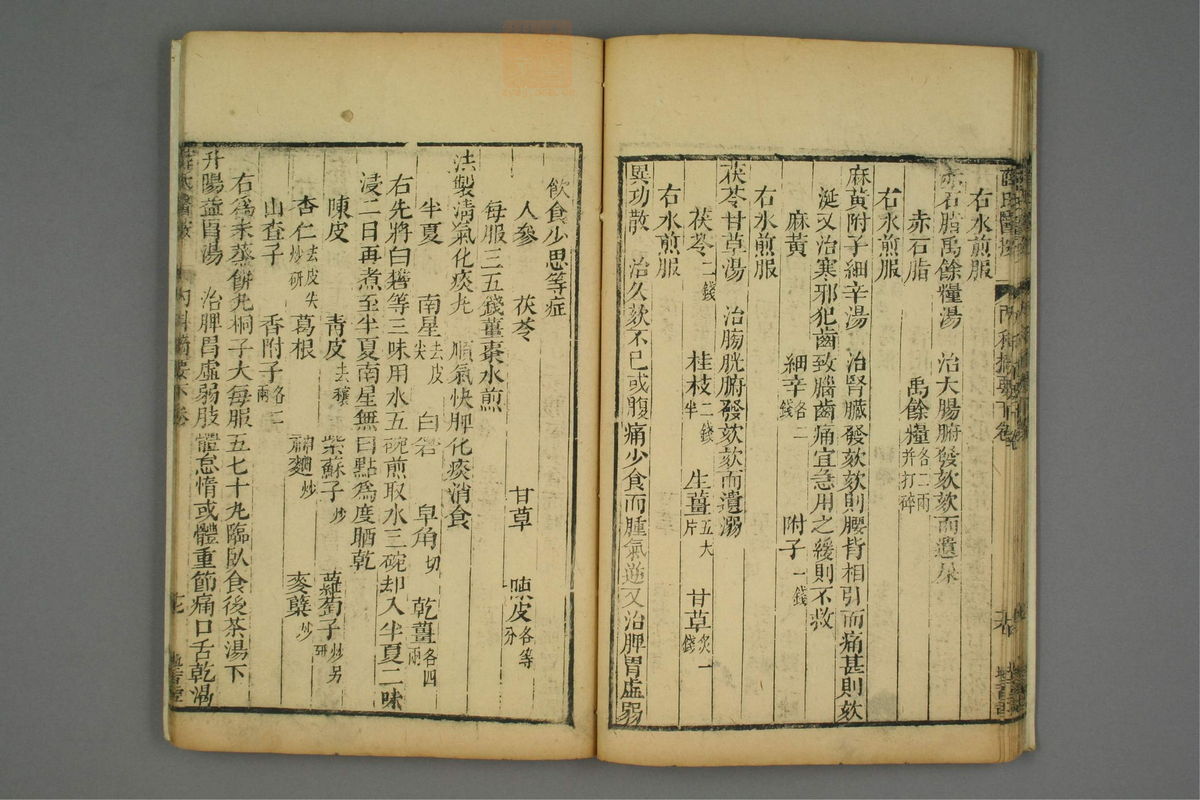 右水煎服
赤石脂禹餘糧湯　治大腸腑發欬欬而遺屎
赤石脂　禹餘糧各二兩并打碎
右水煎服
麻黃附子細辛湯　治腎臟發欬欬則腰背相引而痛甚則欬
涎又治寒邪犯齒致腦齒痛宜急用之緩則不救
麻黃　細辛各二錢　附子一錢
右水煎服
茯苓甘草湯　治膀胱腑發欬欬而遺溺
茯苓二錢　桂枝二錢半　生薑五大片　甘草炙一錢
右水煎服
異功散　治久欬不已或腹痛少食而腫氣逆又治脾胃虛弱
飲食少思等症
人參　茯苓　甘草　陳皮各等分
每服三五錢薑棗水煎
法製清氣化痰丸　順氣快脾化痰消食
半夏　南星去皮尖　白礬　皁角切　乾薑各四兩
右先將白礬等三味用水五碗煎取水三碗却入半夏二味
浸二日再煮至半夏南星無白點爲度晒乾
陳皮　青皮去穰　紫蘇子炒　蘿蔔子炒另研
杏仁去皮尖炒研　葛根　神麯炒　麥糵炒
山查子　香附子各二兩
右爲末蒸餅丸桐子大每服五七十丸臨臥食後茶湯下
升陽益胃湯　治脾胃虛弱肢體怠惰或體重節痛口舌乾渴